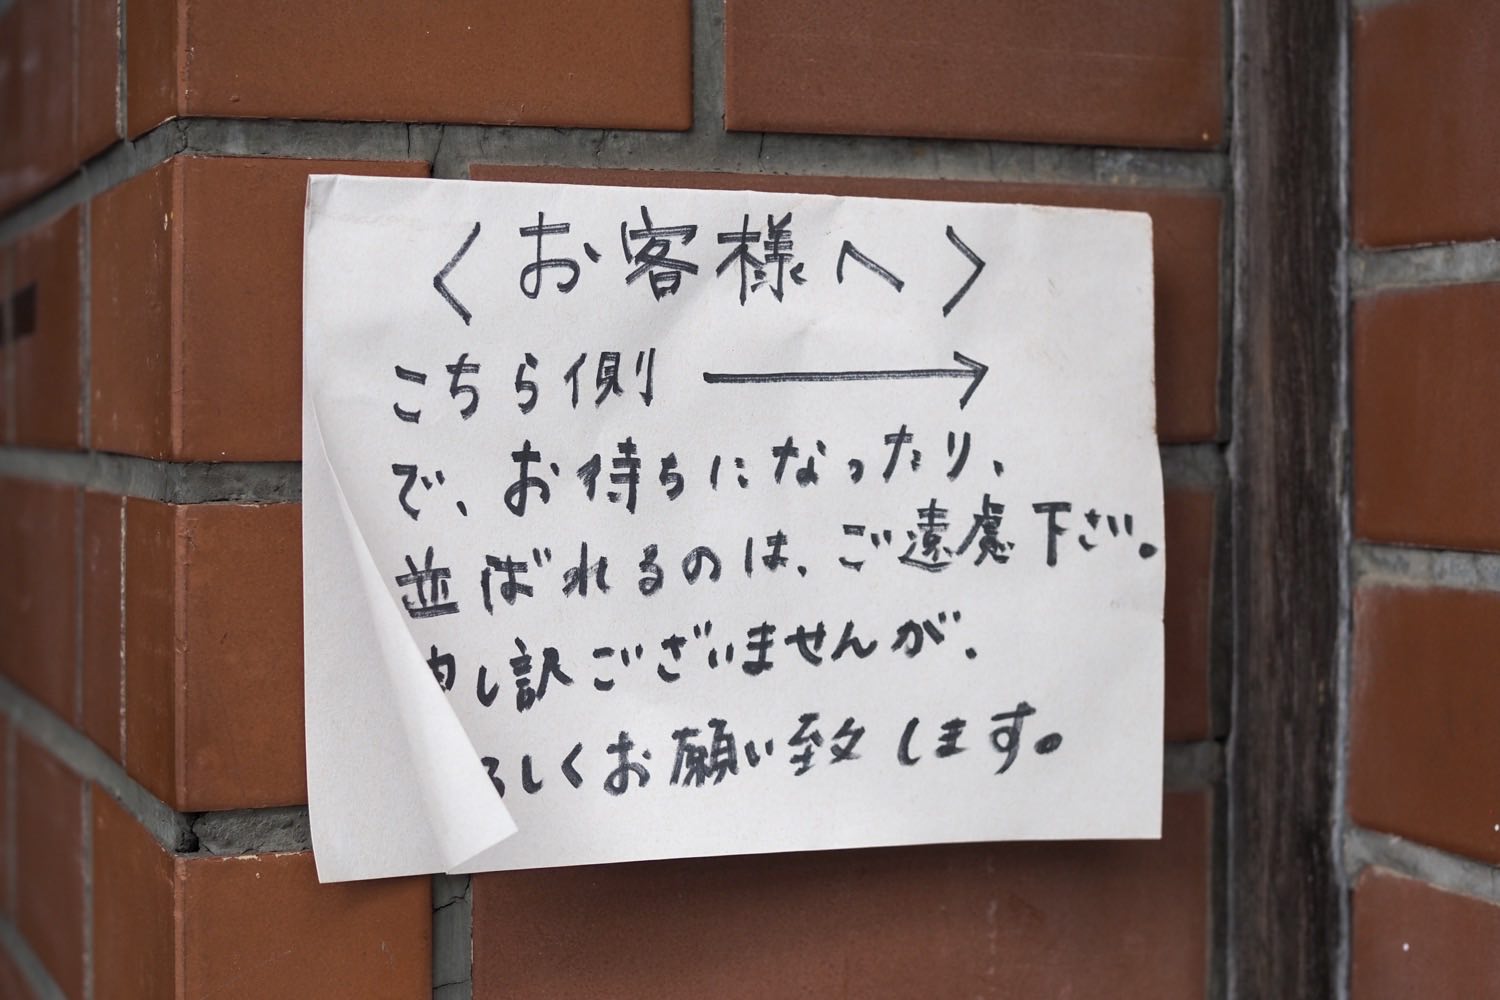 〈お客様へ〉
こちら側 →
で、お待ちになったり、
並ばれるのは、ご遠慮下さい。
し訳ございませんが、
ろしくお願い致します。